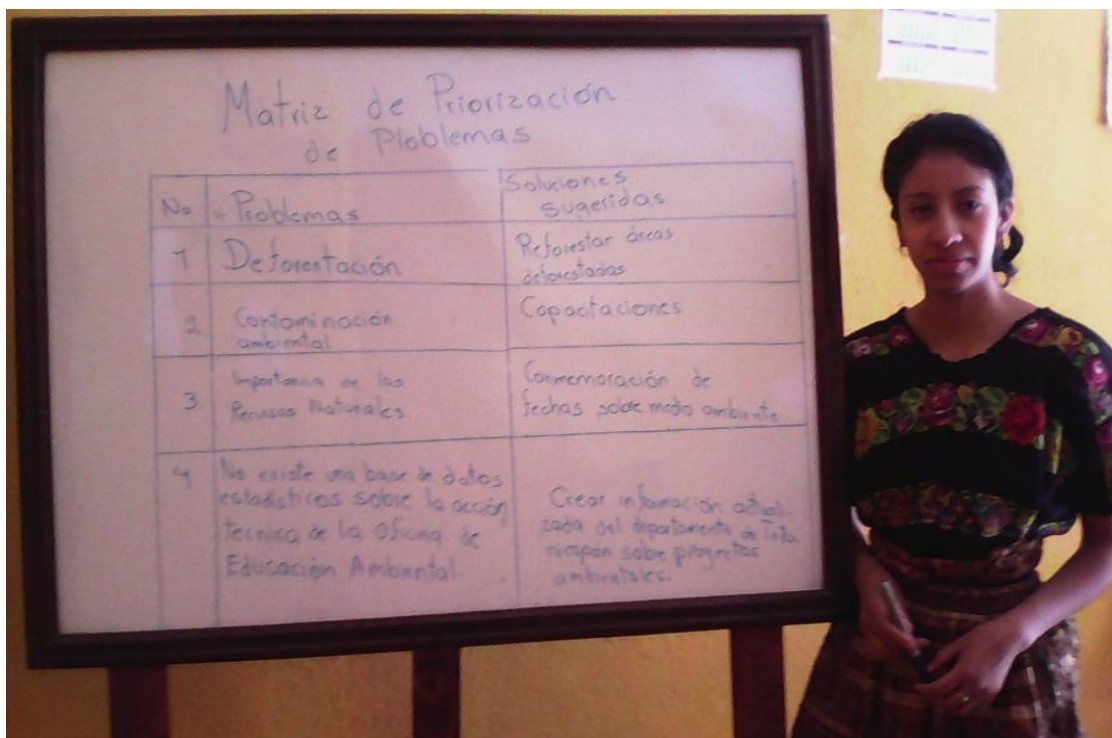 Matriz de Priorización
de Ploblemas
No Problemas
Soluciones
sugeridas
1 Deforestación
Reforestar áreas
deforestadas
2 Contaminación
ambiental
Capacitaciones
3 Importancia de los
Recursos Naturales.
Conmemoración de
fechas sobre medio ambiente
4 No existe una base de datos
estadísticos sobre la acción
tecnica de la Oficina de
Educación Ambiental
Crear información actuali
zada del departamento de Toto
nicapán sobre proyectos
ambientales.